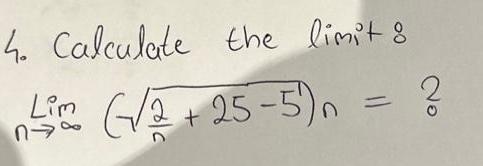 4. Calculate the limit :
Lim n→∞ (√(2/n + 25 - 5))n = ?